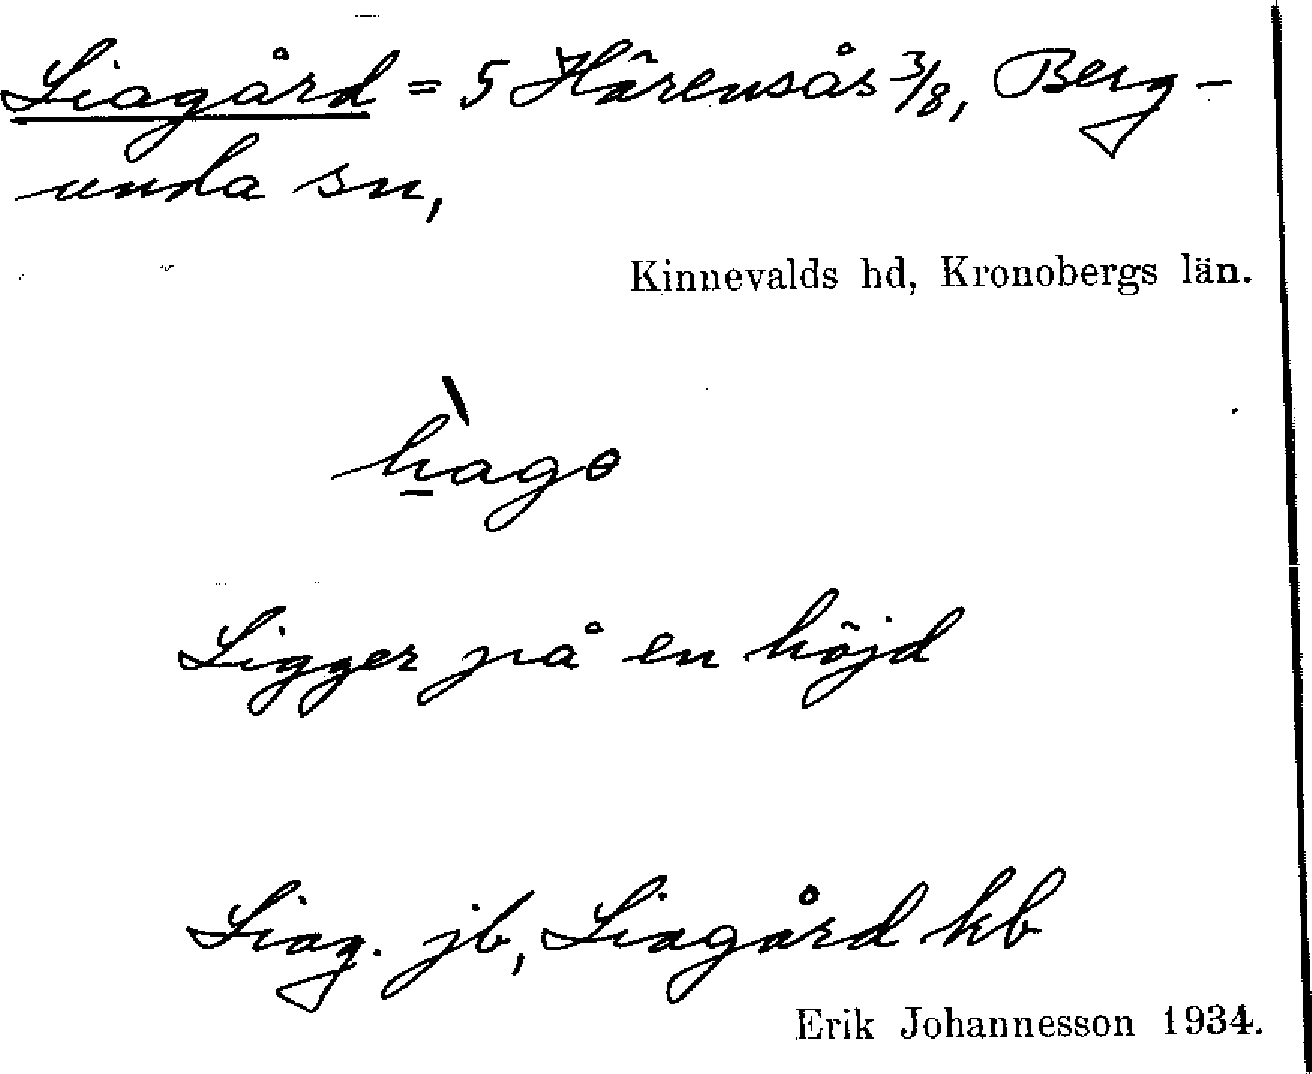 Liagård = 5 Härensås 3/8, Berg-
unda sn,
Kinnevalds hd, Kronobergs län.
Ligger på en höjd
Liag. jb, Liagård kb
Erik Johannesson 1934.